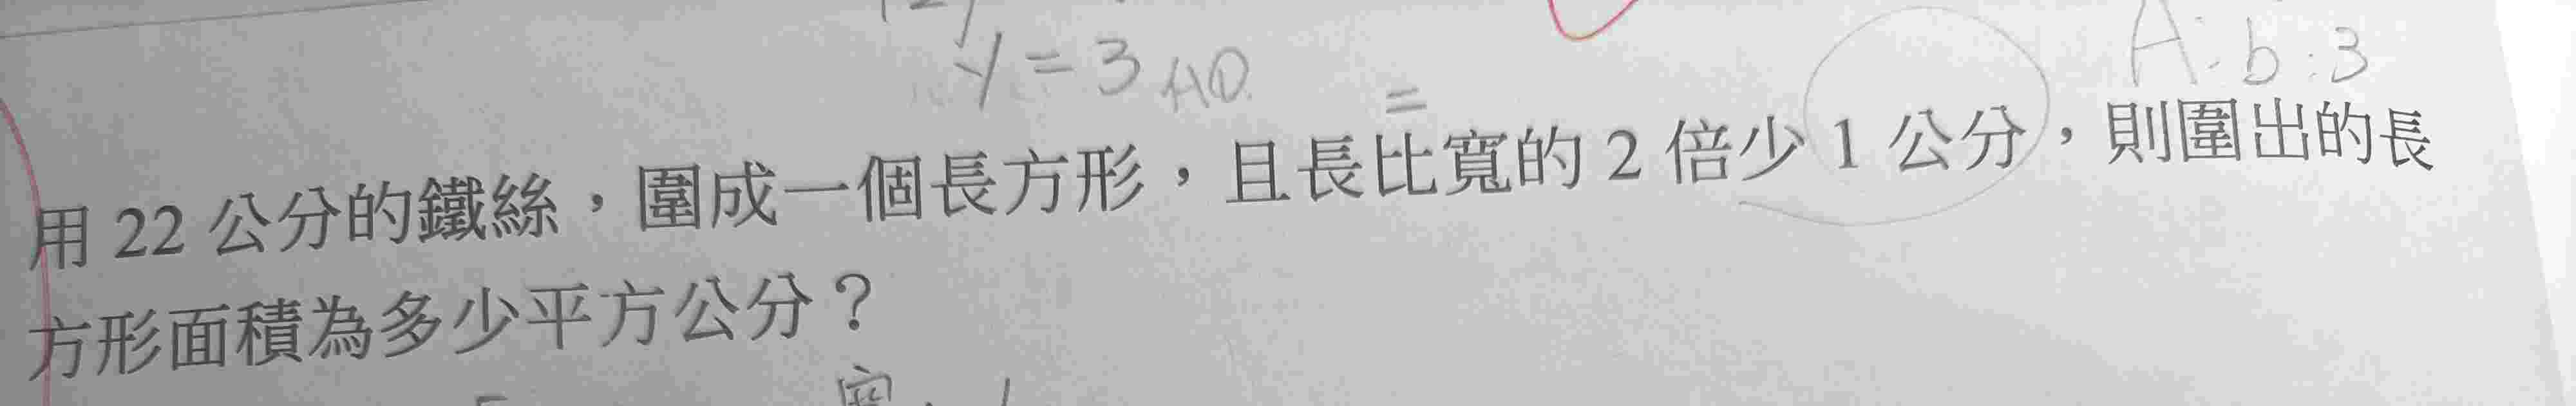 y = 3
A: b:3
用 22 公分的鐵絲，圍成一個長方形，且長比寬的 2 倍少 1 公分，則圍出的長
方形面積為多少平方公分？